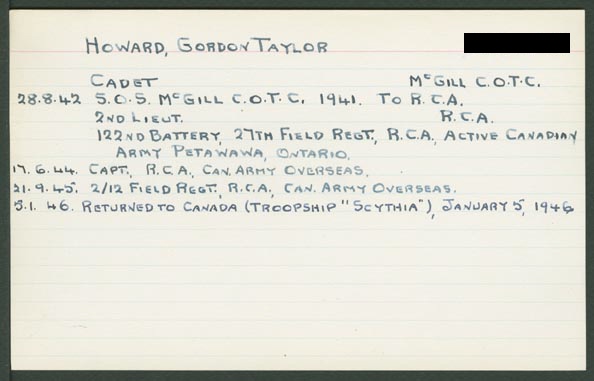 HOWARD, GORDON TAYLOR
CADET McGILL C.O.T.C.
28.8.42 S.O.S. McGILL C.O.T.C. 1941. TO R.C.A.
2ND LIEUT. R.C.A.
122ND BATTERY, 27TH FIELD REGT., R.C.A., ACTIVE CANADIAN
ARMY PETAWAWA, ONTARIO.
17.6.44. CAPT., R.C.A., CAN. ARMY OVERSEAS.
21.9.45. 2/12 FIELD REGT., R.C.A., CAN. ARMY OVERSEAS.
5.1.46. RETURNED TO CANADA (TROOPSHIP "SCYTHIA"), JANUARY 5, 1946